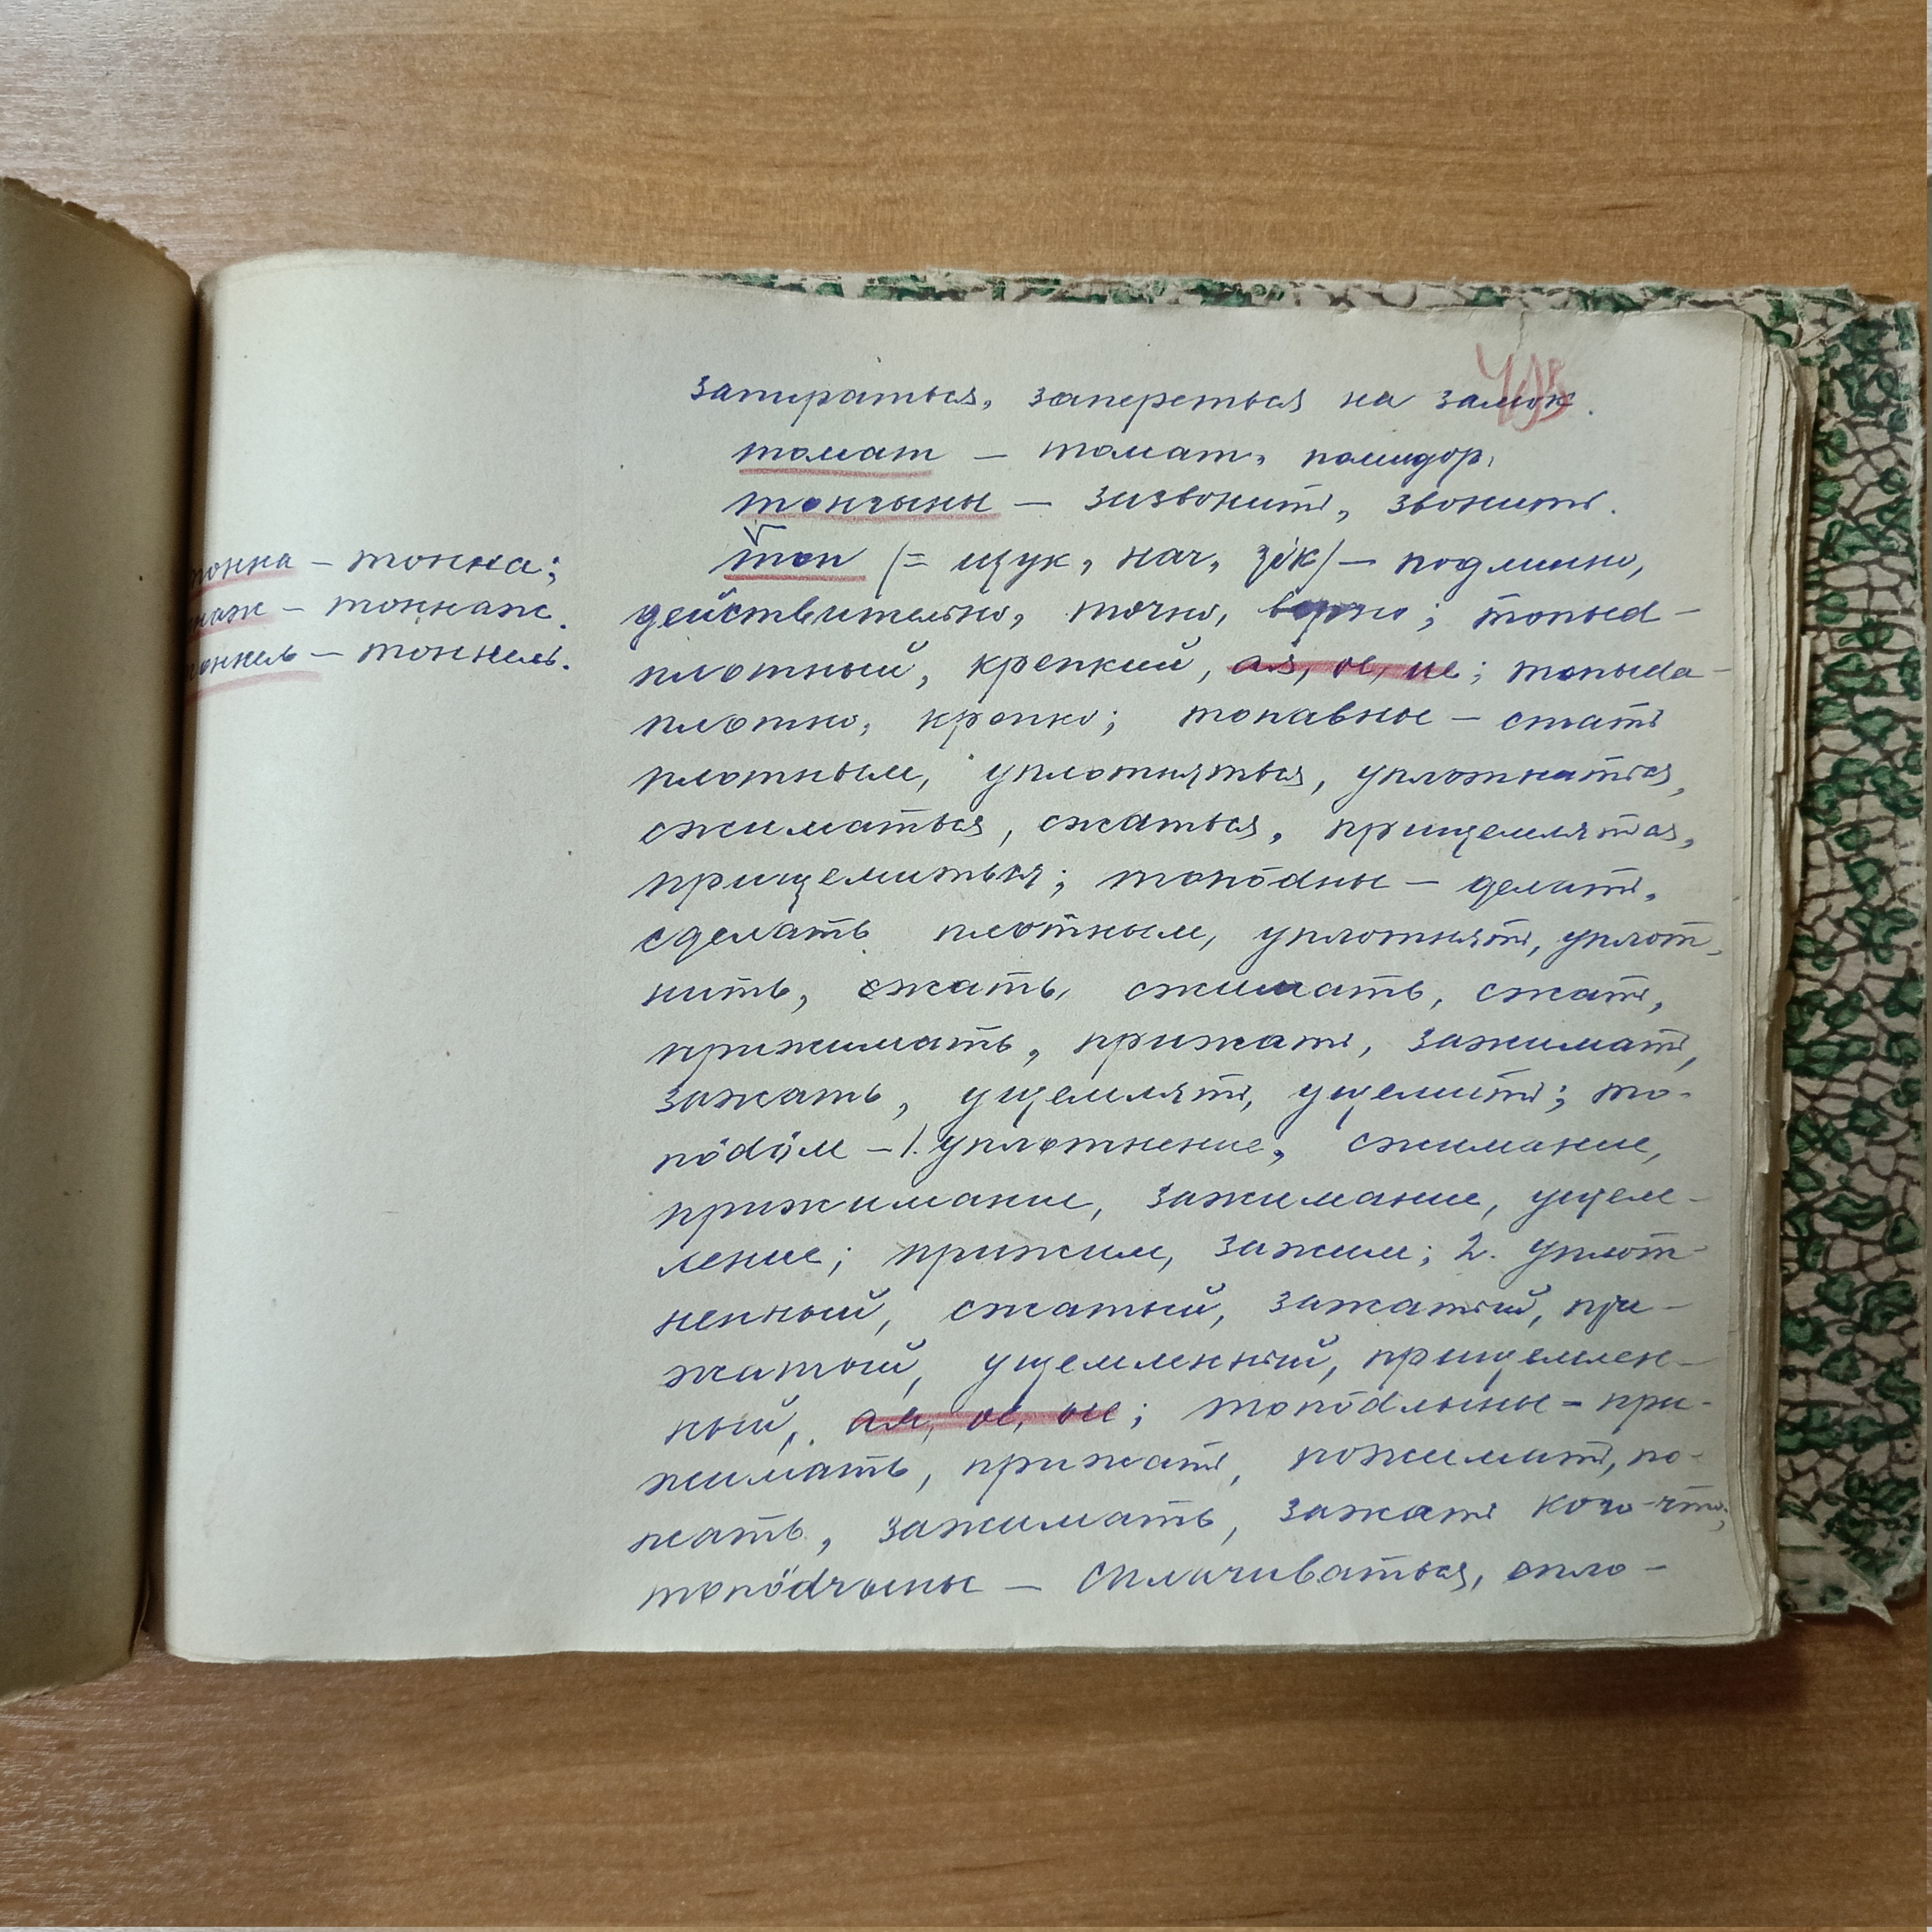 запираться, запереться на замок.
томат – томат, помидор.
тончыны – зизвонить, звонить.
тонна – тонна;
– тоннаж.
тоннель – тоннель.
топ (= щук, нач, зiк) – подлинно,
действительно, точно, верно; топыd –
плотный, крепкий, ая, ое, ие; топыda –
плотно, крепко; топавные – стать
плотным, уплотняться, уплотнаться,
сжиматься, сжаться, прищемляться,
прищемиться; топöдны – делать,
сделать плотным, уплотнять, уплот-
нить, сжать, сжимать, сжать,
прижимать, прижать, зажимать,
зажать, ущемлять, ущемить; то-
пöдöм – 1. уплотнение, сжимание,
прижимание, зажимание, ущем-
ление; прижим, зажим; 2. уплот-
ненный, сжатый, зажатый, при-
жатый, ущемленный, прищемлен-
ный, ая, ое, ые; топöдлыны – при-
жимать, прижать, пожимать, по-
жать, зажимать, зажать кого-что;
топöдчыны – сплачиваться, спло-